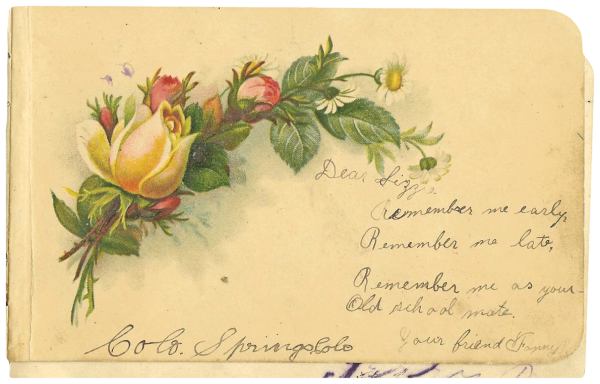 Dear Lizzie
Remember me early,
Remember me late,
Remember me as your
Old school mate.
Your friend Fanny
Colo. Springs, Colo